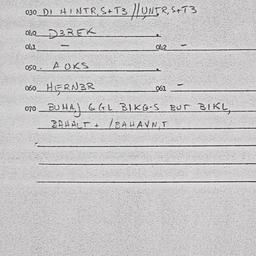 030 DI HINTR, S+T3 // UNTR, S+T3
040 D3REK
041 - 042 -
050 A OKS
060 HERN3R 061 -
070 BUHAJ GGL BIKG-S BUT BIKL,
BAHALT +